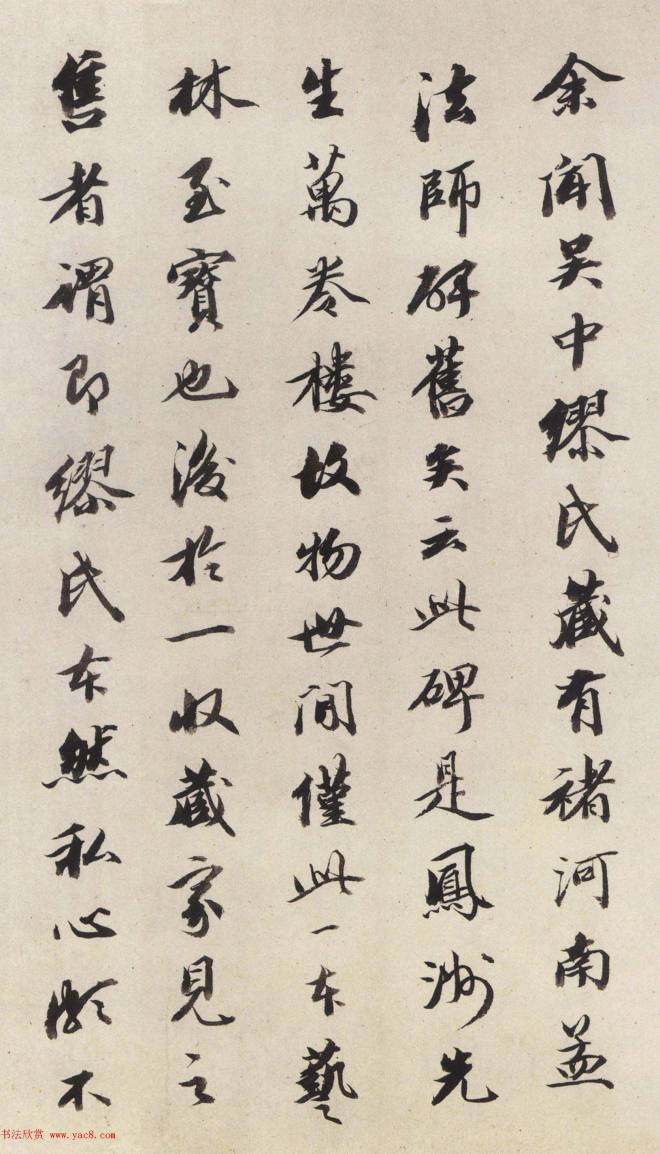 余闻吴中缪氏藏有褚河南孟
法師碑舊矣云此碑是鳳洲先
生萬卷樓故物世间僅此一本藝
林至寶也後於一收藏家見之
售者謂即缪氏本然私心頗不
书法欣赏 www.yac8.com